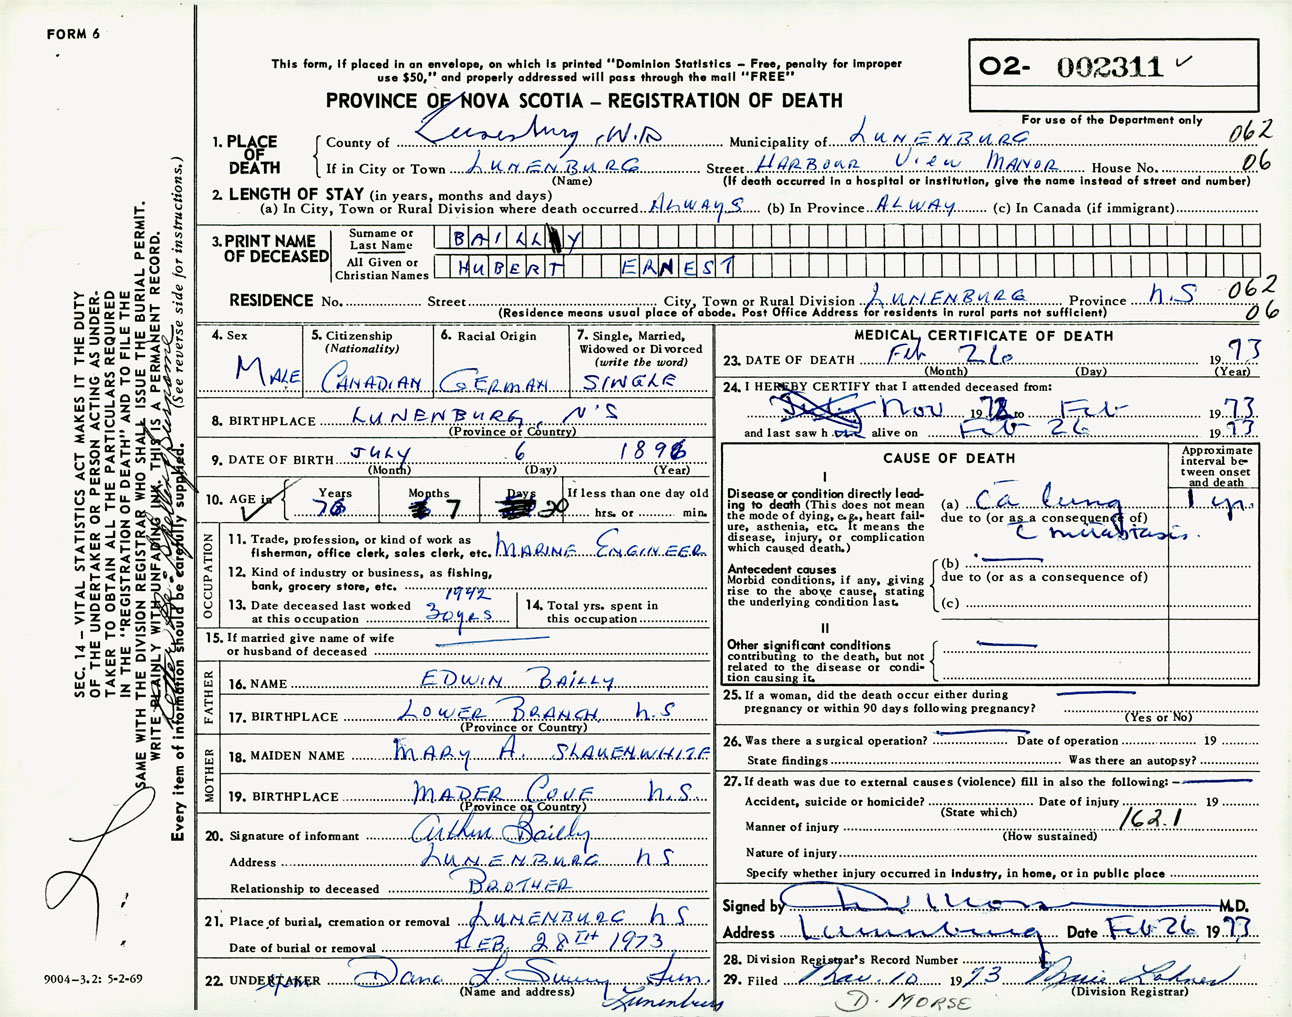 FORM 6
This form, if placed in an envelope, on which is printed "Dominion Statistics – Free, penalty for improper
use $50," and properly addressed will pass through the mail "FREE"
PROVINCE OF NOVA SCOTIA – REGISTRATION OF DEATH
O2- 002311 ✓
For use of the Department only
1. PLACE OF DEATH
County of Lunenburg, W.D Municipality of LUNENBURG 062
If in City or Town LUNENBURG Street HARBOUR VIEW MANOR House No. 06
(Name) (If death occurred in a hospital or institution, give the name instead of street and number)
2. LENGTH OF STAY (in years, months and days)
(a) In City, Town or Rural Division where death occurred ALWAYS (b) In Province ALWAY (c) In Canada (if immigrant)
3. PRINT NAME OF DECEASED
Surname or Last Name BAILLY
All Given or Christian Names HUBERT ERNEST
RESIDENCE No. Street City, Town or Rural Division LUNENBURG Province N.S 062
(Residence means usual place of abode. Post Office Address for residents in rural parts not sufficient) 06
4. Sex MALE
5. Citizenship (Nationality) CANADIAN
6. Racial Origin GERMAN
7. Single, Married, Widowed or Divorced (write the word) SINGLE
8. BIRTHPLACE LUNENBURG, N'S
(Province or Country)
9. DATE OF BIRTH JULY 6 1896
(Month) (Day) (Year)
10. AGE in Years 76 Months 7 Days 20 If less than one day old
hrs. or min.
OCCUPATION
11. Trade, profession, or kind of work as
fisherman, office clerk, sales clerk, etc. MARINE ENGINEER
12. Kind of industry or business, as fishing,
bank, grocery store, etc.
13. Date deceased last worked at this occupation 1942 30 yrs
14. Total yrs. spent in this occupation
15. If married give name of wife
or husband of deceased
FATHER
16. NAME EDWIN BAILLY
17. BIRTHPLACE LOWER BRANCH N.S
(Province or Country)
MOTHER
18. MAIDEN NAME MARY A. SLAUENWHITE
19. BIRTHPLACE MADER COVE N.S
(Province or Country)
20. Signature of informant Arthur Bailly
Address LUNENBURG NS
Relationship to deceased BROTHER
21. Place of burial, cremation or removal LUNENBURG NS
Date of burial or removal FEB. 28TH 1973
22. UNDERTAKER Dana L. Sweeny
(Name and address) Lunenburg
MEDICAL CERTIFICATE OF DEATH
23. DATE OF DEATH Feb 26 1973
(Month) (Day) (Year)
24. I HEREBY CERTIFY that I attended deceased from:
Nov 1972 to Feb 1973
and last saw h im alive on Feb 26 1973
CAUSE OF DEATH
Approximate interval between onset and death
I
Disease or condition directly leading
to death (This does not mean
the mode of dying, e.g., heart failure,
asthenia, etc. It means the
disease, injury, or complication
which caused death.)
(a) Ca lung 1 yr.
due to (or as a consequence of)
c̄ metastasis.
Antecedent causes
Morbid conditions, if any, giving
rise to the above cause, stating
the underlying condition last.
(b)
due to (or as a consequence of)
(c)
II
Other significant conditions
contributing to the death, but not
related to the disease or condition
causing it.
25. If a woman, did the death occur either during
pregnancy or within 90 days following pregnancy?
(Yes or No)
26. Was there a surgical operation? Date of operation 19
State findings Was there an autopsy?
27. If death was due to external causes (violence) fill in also the following:
Accident, suicide or homicide? Date of injury 19
(State which) 162.1
Manner of injury
(How sustained)
Nature of injury
Specify whether injury occurred in industry, in home, or in public place
Signed by D Morse M.D.
Address Lunenburg Date Feb 26 1973
28. Division Registrar's Record Number
29. Filed Mar. 10 1973
(Division Registrar)
D. MORSE
SEC. 14 – VITAL STATISTICS ACT MAKES IT THE DUTY
OF THE UNDERTAKER OR PERSON ACTING AS UNDERTAKER
TO OBTAIN ALL THE PARTICULARS REQUIRED
IN THE "REGISTRATION OF DEATH" AND TO FILE THE
SAME WITH THE DIVISION REGISTRAR WHO SHALL ISSUE THE BURIAL PERMIT.
WRITE PLAINLY WITH UNFADING INK. THIS IS A PERMANENT RECORD.
Every item of information should be carefully supplied. (See reverse side for instructions.)
Letter re: Spelling of Surname
9004–3.2: 5-2-69